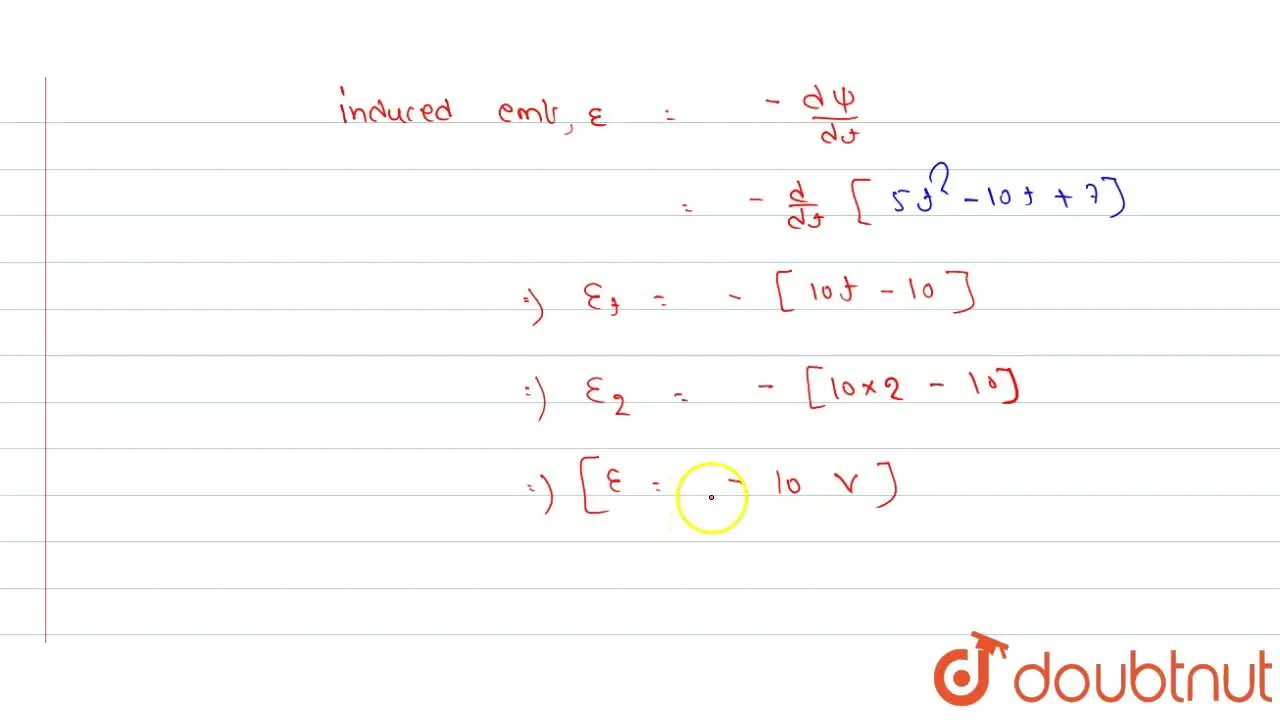 induced emf, ε = - dψ/dt
= - d/dt [ 5t² - 10t + 7 ]
⇒ εt = - [ 10t - 10 ]
⇒ ε2 = - [ 10 × 2 - 10 ]
⇒ [ ε = - 10 V ]
doubtnut